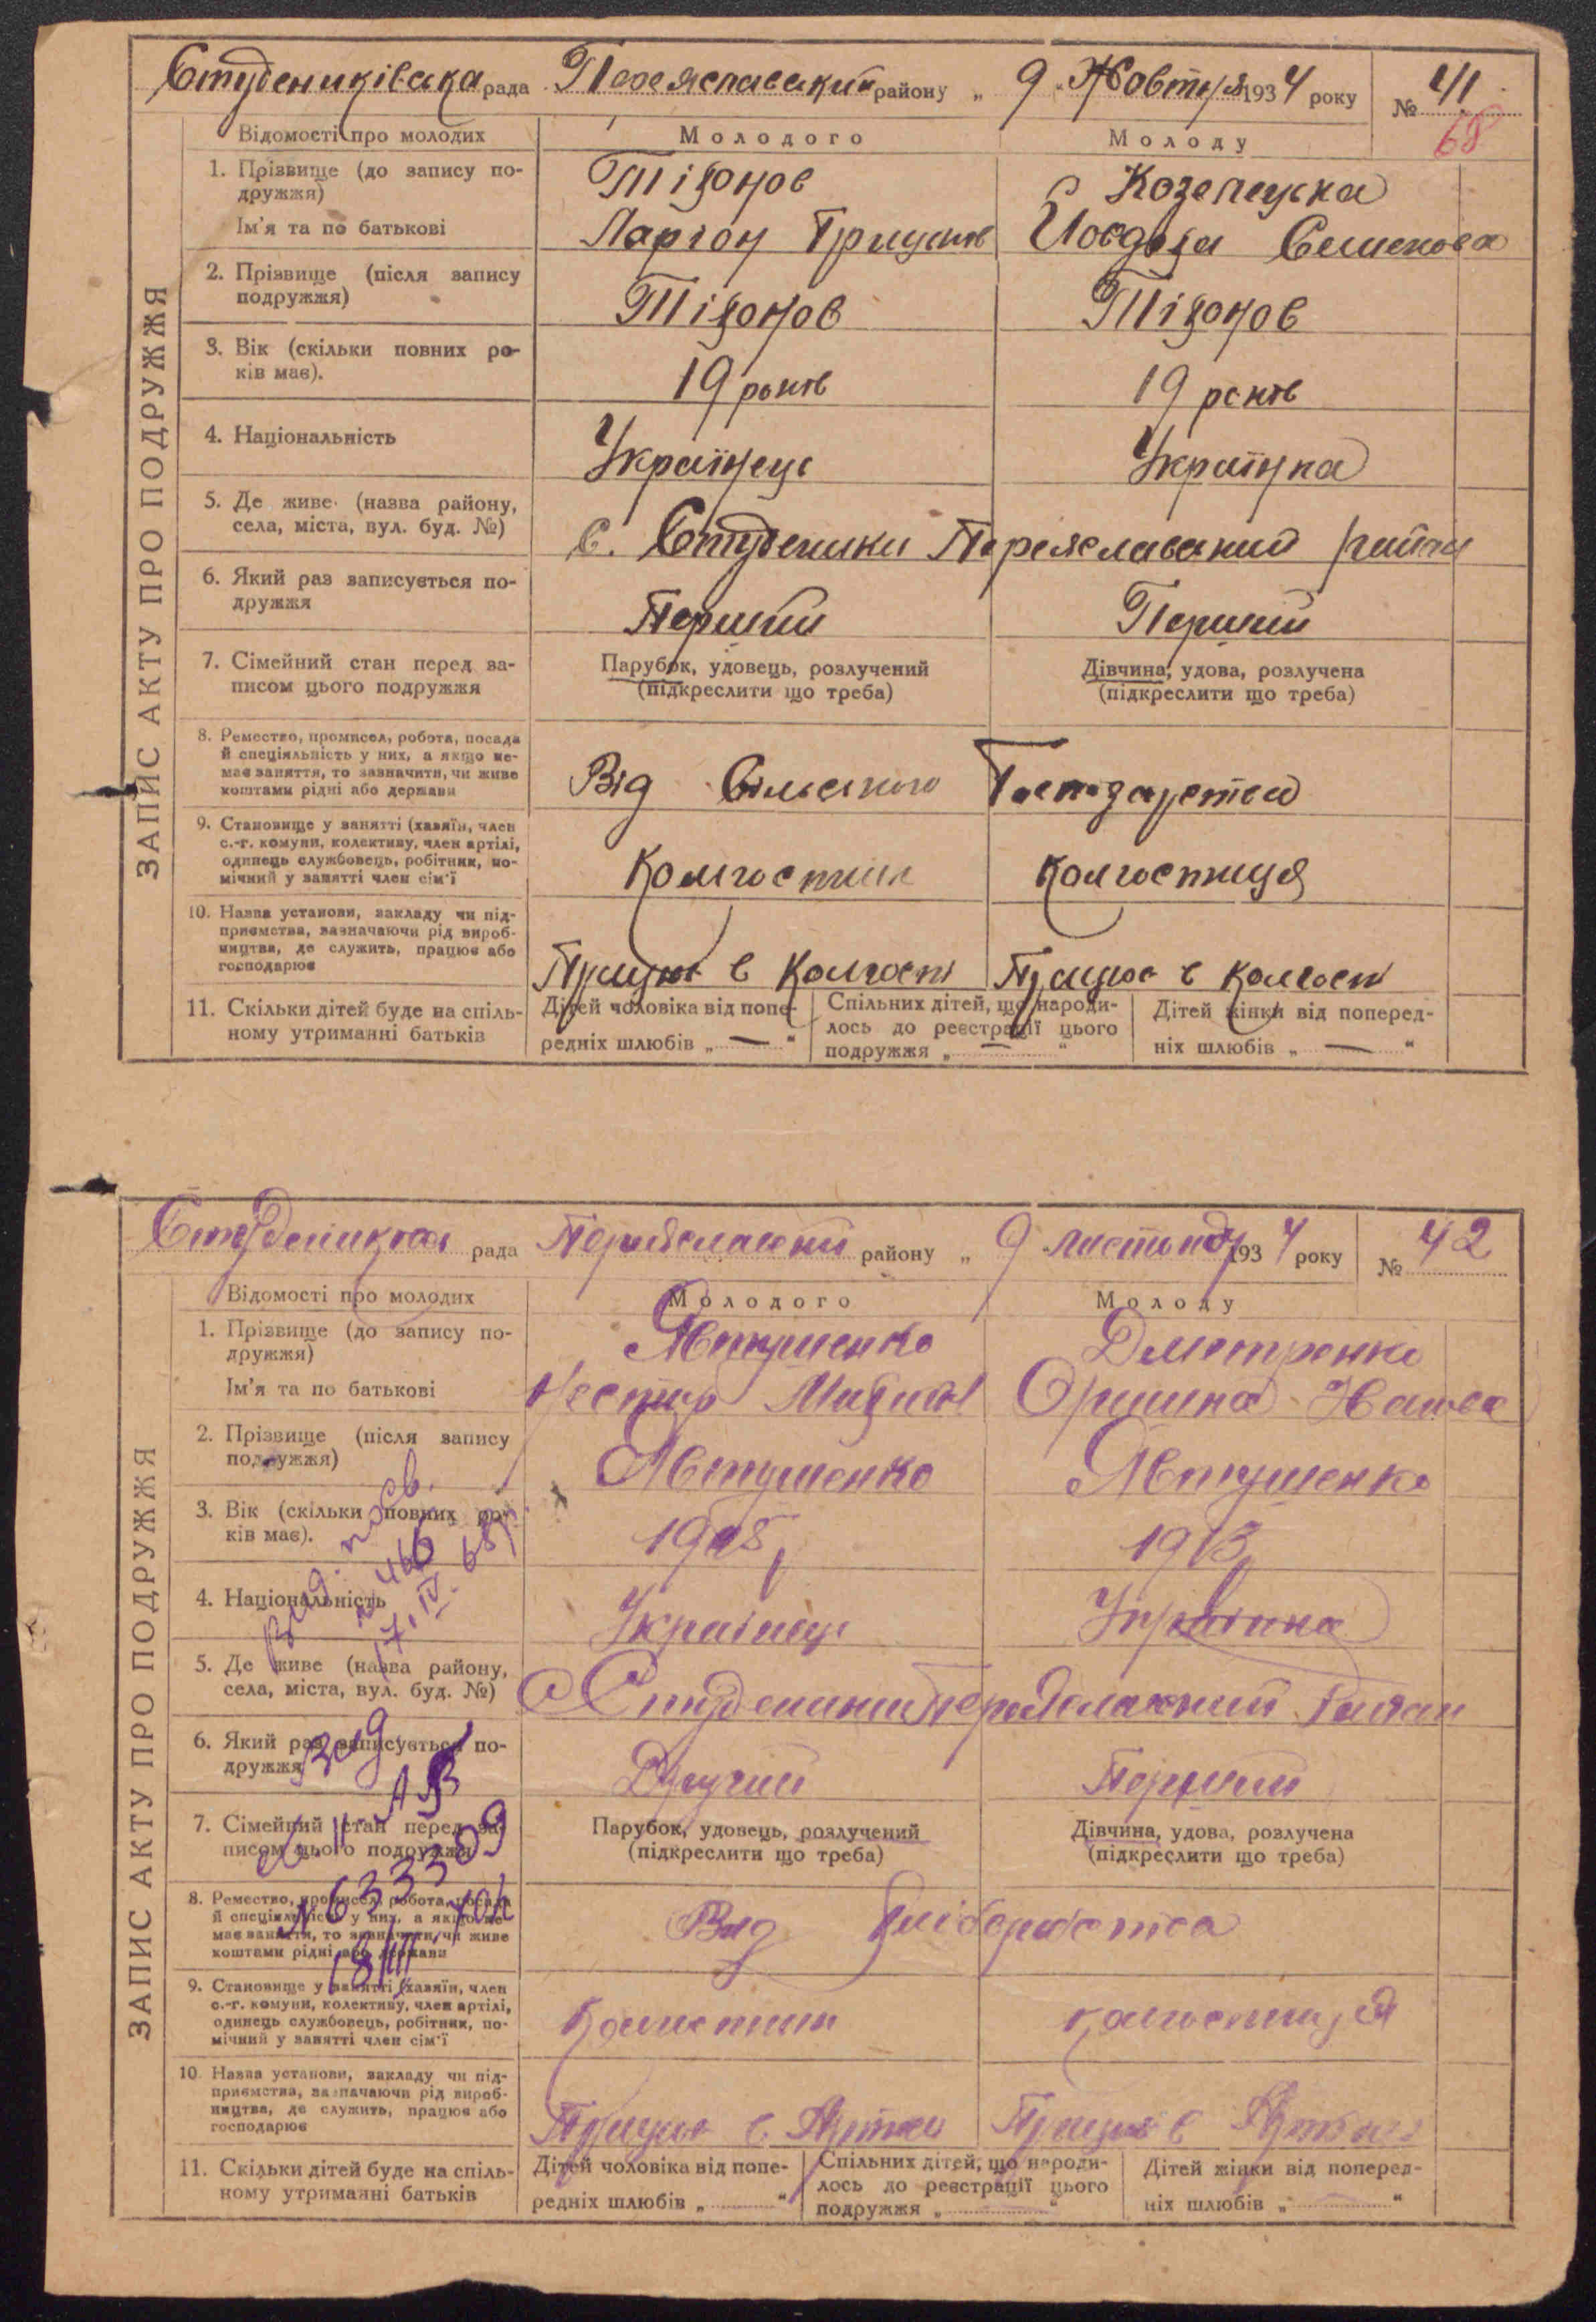 Студениківська рада Переяславський району „ 9 “ Жовтня 1934 року № 41
68
ЗАПИС АКТУ ПРО ПОДРУЖЖЯ
Відомості про молодих Молодого Молоду
1. Прізвище (до запису по-
дружжя) Тіхонов Козелецька
Ім'я та по батькові Ларіон Грицьків Йовдоха Семенова
2. Прізвище (після запису
подружжя) Тіхонов Тіхонов
3. Вік (скільки повних ро-
ків має). 19 років 19 років
4. Національність Українець Українка
5. Де живе (назва району,
села, міста, вул. буд. №) С. Студеники Переяславський район
6. Який раз записується по-
дружжя Перший Перший
7. Сімейний стан перед за-
писом цього подружжя
Парубок, удовець, розлучений
(підкреслити що треба)
Дівчина, удова, розлучена
(підкреслити що треба)
8. Ремество, промисел, робота, посада
й спеціяльність у них, а якщо не-
має заняття, то зазначити, чи живе
коштами рідні або держави
Від Сільського Господарства
9. Становище у занятті (хазяїн, член
с.-г. комуни, колективу, член артілі,
одинець службовець, робітник, по-
мічний у занятті член сім'ї
Колгоспник Колгоспниця
10. Назва установи, закладу чи під-
приємства, зазначаючи рід вироб-
ництва, де служить, працює або
господарює
Працює в Колгоспі Працює в Колгоспі
11. Скільки дітей буде на спіль-
ному утриманні батьків
Дітей чоловіка від попе-
редніх шлюбів „ — “
Спільних дітей, що народи-
лось до реєстрації цього
подружжя „ — “
Дітей жінки від поперед-
ніх шлюбів „ — “
рада району „ 9 листопад 1934 року № 42
ЗАПИС АКТУ ПРО ПОДРУЖЖЯ
Відомості про молодих Молодого Молоду
1. Прізвище (до запису по-
дружжя) Явтушенко Дмитренко
Ім'я та по батькові Нестір Оришка
2. Прізвище (після запису
подружжя) Явтушенко Явтушенко
3. Вік (скільки повних ро-
ків має). 1908 1913
4. Національність Українець Українка
5. Де живе (назва району,
села, міста, вул. буд. №) С Студеники Переяславський Район
6. Який раз записується по-
дружжя Другий Перший
7. Сімейний стан перед за-
писом цього подружжя
Парубок, удовець, розлучений
(підкреслити що треба)
Дівчина, удова, розлучена
(підкреслити що треба)
8. Ремество, промисел, робота, посада
й спеціяльність у них, а якщо не-
має заняття, то зазначити, чи живе
коштами рідні або держави
Від Хліборобства
9. Становище у занятті (хазяїн, член
с.-г. комуни, колективу, член артілі,
одинець службовець, робітник, по-
мічний у занятті член сім'ї
Колгоспник Колгоспниця
10. Назва установи, закладу чи під-
приємства, зазначаючи рід вироб-
ництва, де служить, працює або
господарює
Працює в Артілі Працює в Артілі
11. Скільки дітей буде на спіль-
ному утриманні батьків
Дітей чоловіка від попе-
редніх шлюбів „ “
Спільних дітей, що народи-
лось до реєстрації цього
подружжя „ “
Дітей жінки від поперед-
ніх шлюбів „ “
Вид. посв.
№ 466
17. IV. 68р.
Вид